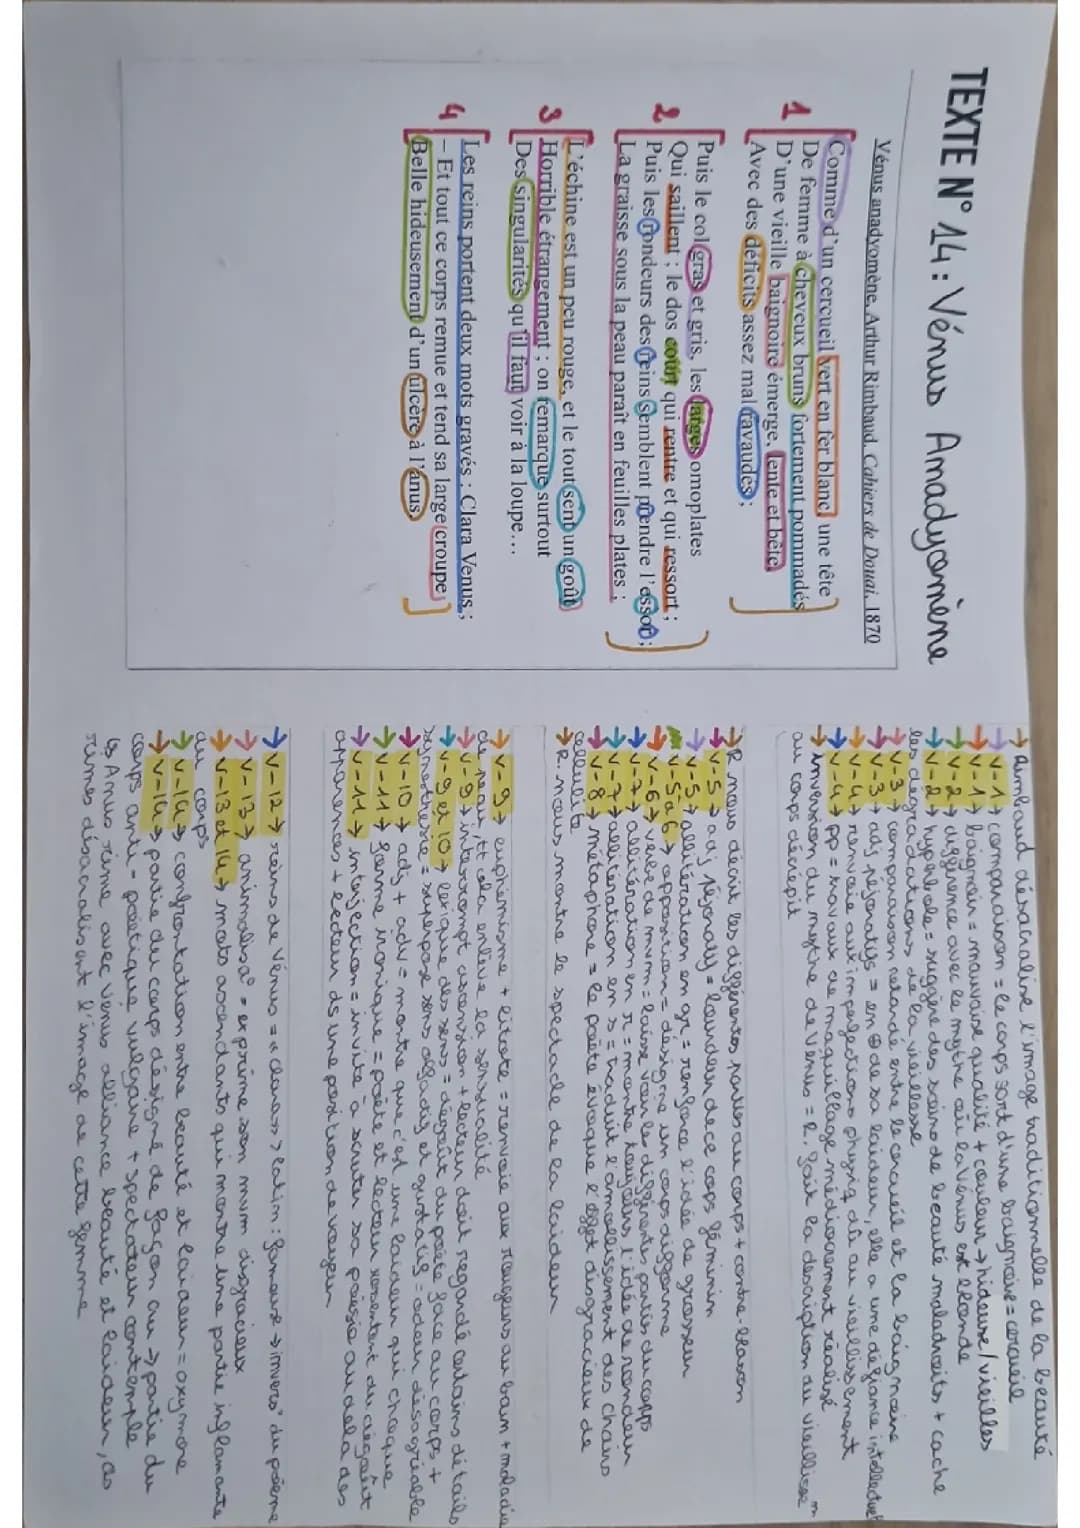 TEXTE N° 14 : Vénus Amadyomène
Vénus anadyomène, Arthur Rimbaud, Cahiers de Douai, 1870
1
Comme d'un cercueil vert en fer blanc, une tête
De femme à cheveux bruns fortement pommadés
D'une vieille baignoire émerge, lente et bête,
Avec des déficits assez mal ravaudés ;
2
Puis le col gras et gris, les larges omoplates
Qui saillent ; le dos court qui rentre et qui ressort ;
Puis les rondeurs des reins semblent prendre l'essor ;
La graisse sous la peau paraît en feuilles plates ;
3
L'échine est un peu rouge, et le tout sent un goût
Horrible étrangement ; on remarque surtout
Des singularités qu'il faut voir à la loupe...
4
Les reins portent deux mots gravés : Clara Venus ;
– Et tout ce corps remue et tend sa large croupe
Belle hideusement d'un ulcère à l'anus.
→ Rimbaud désacralise l'image traditionnelle de la beauté
→ v-1 → comparaison = le corps sort d'une baignoire = cercueil
→ v-1 → baignoire = mauvaise qualité + couleur → hideuse / vieilles
→ v-2 → différence avec le mythe où la Vénus est blonde
→ v-2 → hyperbole = suggère des soins de beauté maladroits + cache
les dégradations de la vieillesse
→ v-3 → comparaison retardé entre le cercueil et la baignoire
→ v-3 → adj péjoratifs = en ⊕ de sa laideur, elle a une déficience intellectuel
→ v-4 → renvoie aux imperfections physiq dû au vieillissement
→ v-4 → pp = travaux de maquillage médiocrement réalisé
→ inversion du mythe de Vénus = R. fait la description du vieillissem
au corps décrépit
→ R nous décrit les différentes parties du corps + contre-blason
→ v-5 → adj péjoratif = lourdeur de ce corps féminin
→ v-5 → allitération en gr = renforce l'idée de grosseur
v-5 à 6 → apposition = désigne un corps difforme
→ v-6 → verbe de mvm = laisse voir les différentes parties du corps
→ v-7 → allitération en r = montre toujours l'idée de rondeur
→ v-7 → allitération en s = traduit l'amollissement des chairs
→ v-8 → métaphore = le poète évoque l'effet disgracieux de
cellulite
→ R. nous montre le spectacle de la laideur
→ v-9 → euphémisme + litote = renvoie aux rougeurs du bain + maladie
de peau, tt cela enlève la sensualité
→ v-9 → interrompt ascension + lecteur doit regardé certains détails
→ v-9 et 10 → lexique des sens = dégoût du poète face au corps +
synesthésie = superpose sens olfactif et gustatif = odeur désagréable
→ v-10 → adj + adv = montre que c'est une laideur qui choque
→ v-11 → forme ironique = poète et lecteur ressentent du dégoût
→ v-11 → injection = invite à scruter sa poésie au delà des
apparences + lecteur ds une position de voyeur
→ v-12 → reins de Vénus = « clara » > latin : fameuse → invers° du poème
→ v-13 → animalisa° = exprime son mvm disgracieux
→ v-13 et 14 → mots ascendants qui montre une partie inflamante
du corps
→ v-14 → confrontation entre beauté et laideur = oxymore
→ v-14 → partie du corps désigné de façon cru → partie du
corps anti-poétique vulgaire + spectateur contemple
↳ Anus rime avec Venus alliance beauté et laideur, ces
rimes désacralisent l'image de cette femme